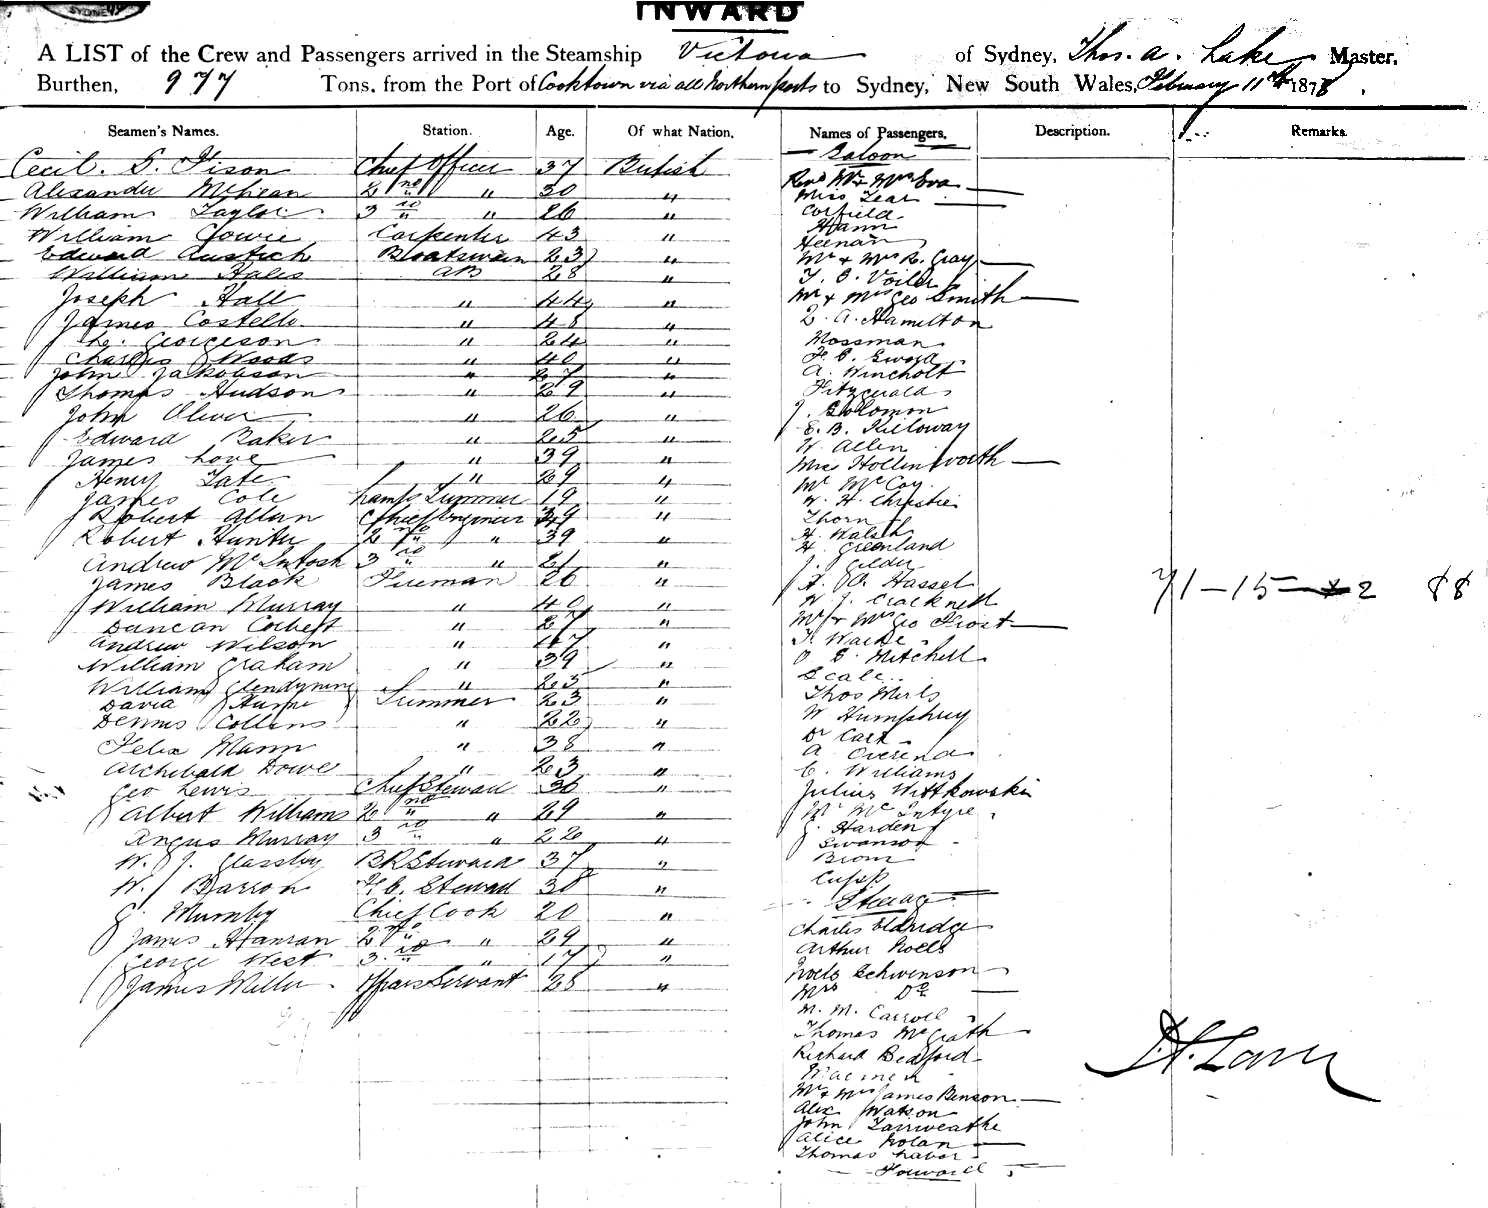 SYDNEY
INWARD
A LIST of the Crew and Passengers arrived in the Steamship Victoria of Sydney, Thos. A. Lake Master,
Burthen, 977 Tons, from the Port of Cooktown via all Northern ports to Sydney, New South Wales, February 11th 1878.
Seamen's Names. Station. Age. Of what Nation. Names of Passengers. Description. Remarks.
Cecil. S. Fison Chief Officer 37 British
Alexander McLean 2nd " 30 "
William Taylor 3rd " 26 "
William Gowie Carpenter 43 "
Edward Austick Boatswain 23 "
William Hales AB 28 "
Joseph Hall " 44 "
James Costello " 48 "
Georgeson " 24 "
Charles Woods " 40 "
John Jakobson " 27 "
Thomas Hudson " 29 "
John Oliver " 26 "
Edward Baker " 25 "
James Love " 39 "
Henry Tate " 29 "
James Cole Lamp Trimmer 19 "
Robert Allan Chief Engineer 39 "
Robert Hunter 2nd " 39 "
Andrew McIntosh 3rd " 21 "
James Black Fireman 26 "
William Murray " 40 "
Duncan Corbett " 27 "
Andrew Wilson " 47 "
William Graham " 39 "
William Glendyning " 23 "
David Trimmer 23 "
Dennis Collins " 22 "
Felix Mann " 38 "
Archibald Dowe " 23 "
Geo Lewis Chief Steward 36 "
Albert Williams 2nd " 29 "
Angus Murray 3rd " 22 "
W. J. Glassby B R Steward 37 "
W. Barron F. C. Steward 38 "
G. Mumby Chief Cook 20 "
James Hanran 2nd " 29 "
George West 3rd " 17 "
James Miller Offrs Servant 28 "
Saloon
Revd Mr & Mrs Eva
Miss Tear
Corfield
Hann
Heenan
Mr & Mrs R. Gray
Mr & Mrs Geo Smith
L. A. Hamilton
Mossman
F. C. Sword
A. Wincholt
Fitzgerald
J. Solomon
E. B. Kelloway
W Allen
Mrs Hollinsworth
Mr McCoy
W. H. Christie
Thorn
H. Walsh
H. Greenland
J. Gilder
A. Hassel
W J. Cracknell
Mr & Mrs Geo Frost
O S. Mitchell
Scale
Thos Merls
W Humphrey
Dr Carr
A Overend
C. Williams
Julius Wittkowski
Mr McIntyre
G. Harden
Swanson
Brown
Cupp
Steerage
Charles Eldridge
Arthur Noels
Noels Schwenson
Mrs Do
M. M. Carroll
Thomas McGrath
Richard Bedford
Mr & Mrs James Benson
Alex Watson
John Fairweathe
Alice Nolan
Thomas Labor
Forward
71 - 15 - 2 88